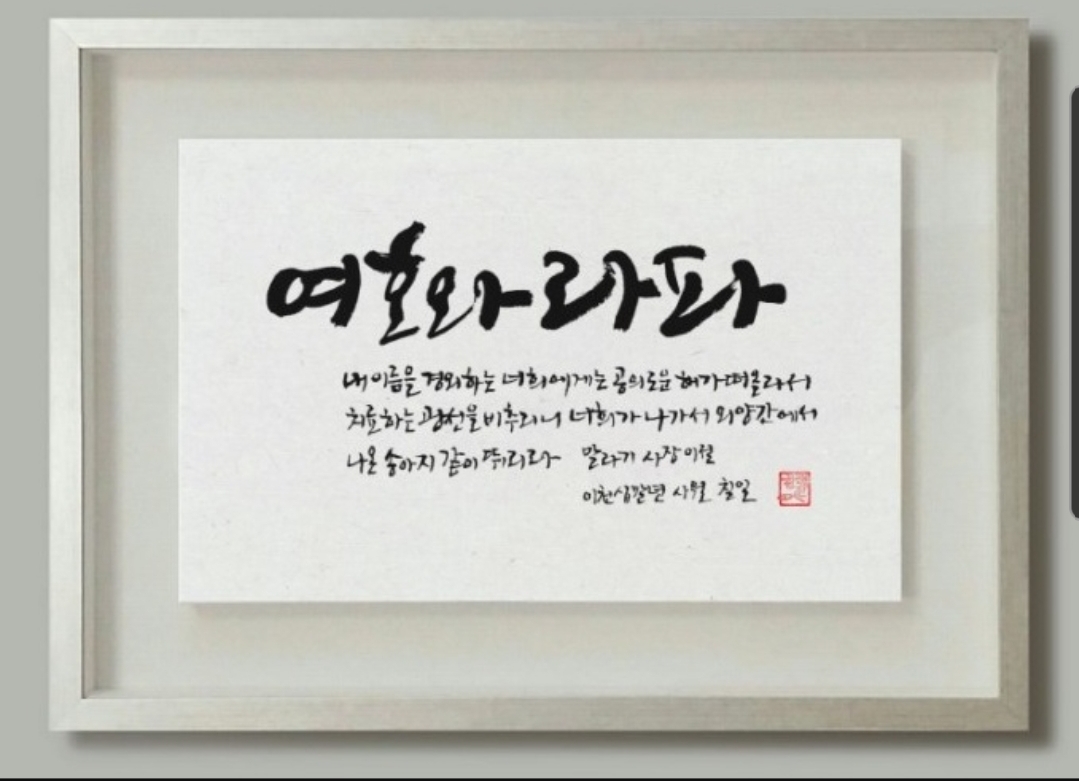 여호와 라파
내 이름을 경외하는 너희에게는 공의로운 해가 떠올라서
치료하는 광선을 비추리니 너희가 나가서 외양간에서
나온 송아지 같이 뛰리라 말라기 사장 이절
이천십팔년 사월 칠일